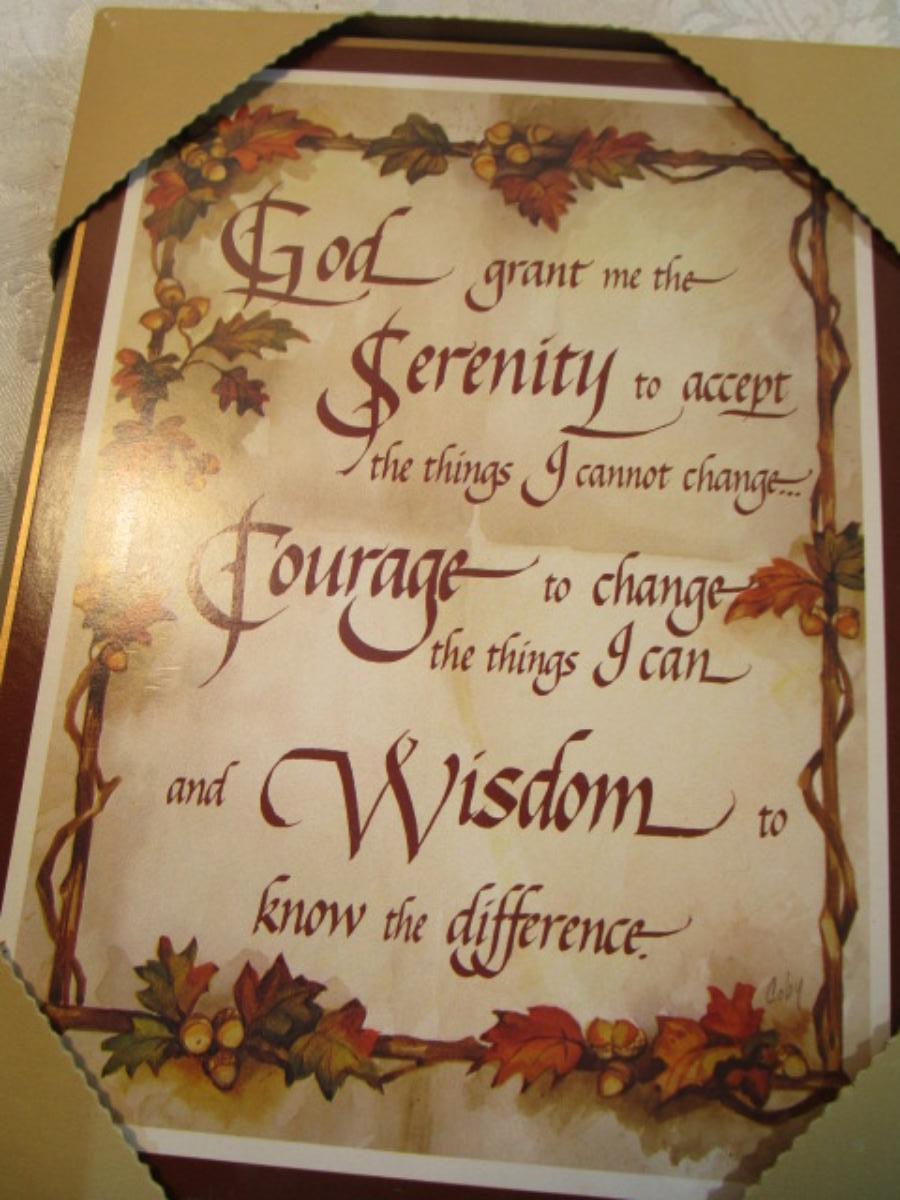 God grant me the
Serenity to accept
the things I cannot change...
Courage to change
the things I can
and Wisdom to
know the difference.
Coby